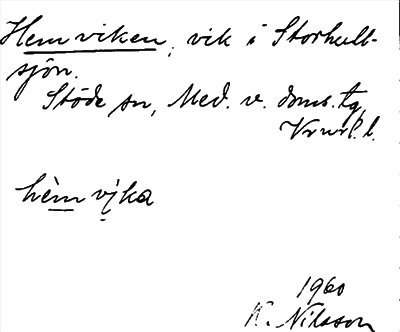 Hemviken, vik i Storhull-
sjön.
Stöde sn, Med. v. doms. tg,
Vrnrl. l.
hèm vịka
1960
K. Nilsson